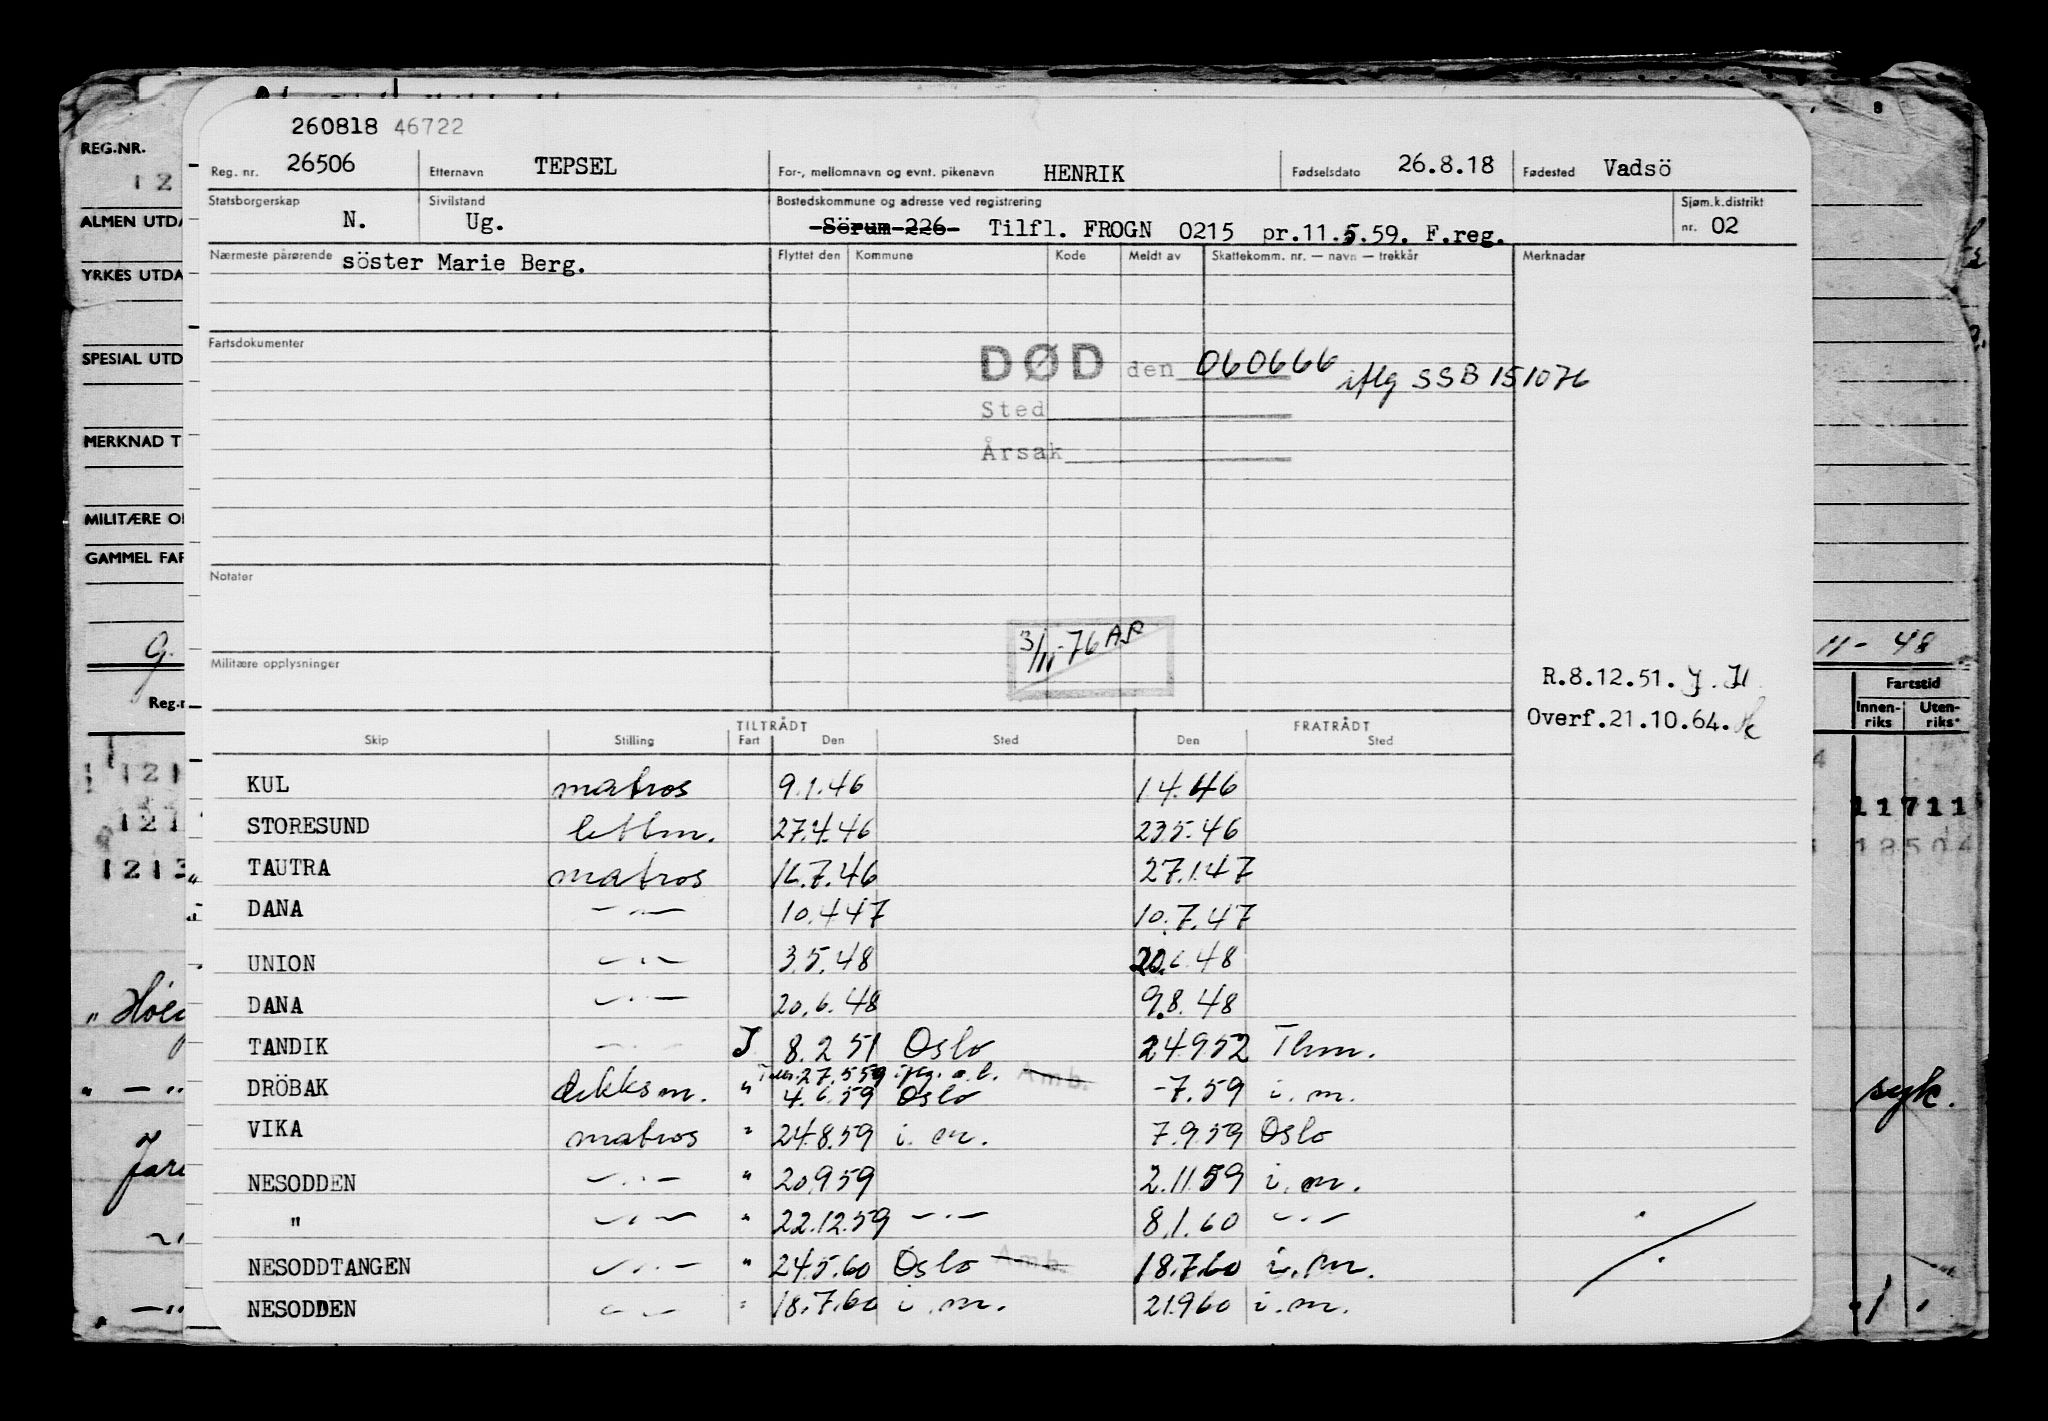 260818 46722
Reg. nr. 26506 Etternavn TEPSEL For-, mellomnavn og evnt. pikenavn HENRIK Fødselsdato 26.8.18 Fødested Vadsö
Statsborgerskap N. Sivilstand Ug. Bostedskommune og adresse ved registrering Sörum 226 Tilfl. FROGN 0215 pr.11.5.59. F.reg. Sjøm.k.distrikt nr. 02
Nærmeste pårørende söster Marie Berg. Flyttet den Kommune Kode Meldt av Skattekomm. nr. — navn — trekkår Merknader
Fartsdokumenter
DØD den 060666 iflg SSB 151076
Sted
Årsak
Notater
3/11-76 AP
Militære opplysninger
R.8.12.51.
Overf.21.10.64.
TILTRÅDT FRATRÅDT
Skip Stilling Fart Den Sted Den Sted
KUL matros 9.1.46 1.4.46
STORESUND lettm. 27.4.46 23.5.46
TAUTRA matros 16.7.46 27.1.47
DANA —"— 10.4.47 10.7.47
UNION —"— 3.5.48 20.6.48
DANA —"— 20.6.48 9.8.48
TANDIK —"— J 8.2.51 Oslo 24.9.52 Thm.
27.5.59 iflg. a.b. Amb.
DRÖBAK dekksm. " 4.6.59 Oslo -7.59 i.m.
VIKA matros " 24.8.59 i.m. 7.9.59 Oslo
NESODDEN —"— " 20.9.59 2.11.59 i.m.
" —"— " 22.12.59 —"— 8.1.60 —"—
NESODDTANGEN —"— " 24.5.60 Oslo Amb. 18.7.60 i.m.
NESODDEN —"— " 18.7.60 i.m. 21.9.60 i.m.
REG.NR.
12
ALMEN UTDA
YRKES UTDA
SPESIAL UTD
MERKNAD T
MILITÆRE O
GAMMEL FAR
G.
Reg.n
121
121
1213
" Höeg
" — "
" — "
11 - 48
Fartstid
Innen-riks Uten-riks
11711
18504
syk.